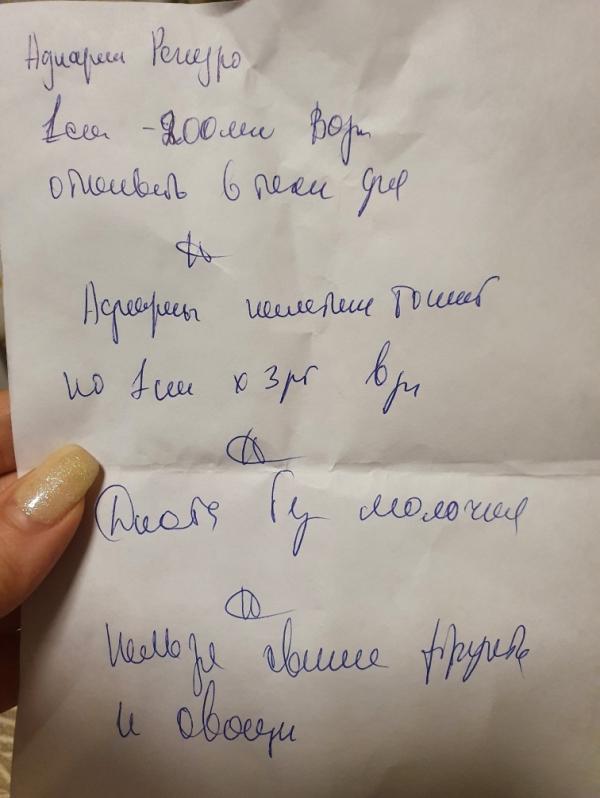 Адиарин Регидро
1 саш - 200 мл воды
отпаивать в течен дня
Адиарин пить
по 1 саш х 3 р в дн
Диета без молочки
нельзя свежие фрукты
и овощи